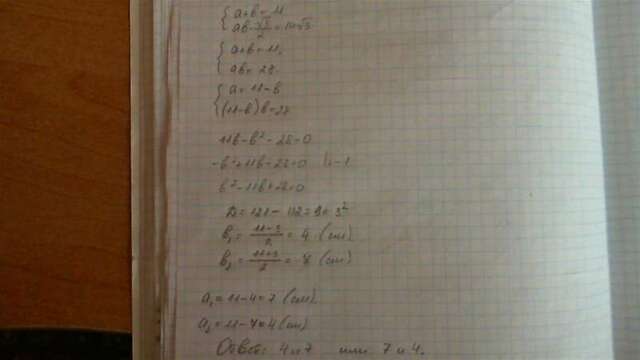 a+b=11
ab·√3/2=14√3
a+b=11,
ab=28.
a=11-b
(11-b)b=28
11b-b²-28=0
-b²+11b-28=0 |·-1
b²-11b+28=0
D=121-112=9=3²
b₁=(11-3)/2=4 (см)
b₂=(11+3)/2=7 (см)
a₁=11-4=7 (см)
a₂=11-7=4 (см)
Ответ: 4 и 7 или 7 и 4.